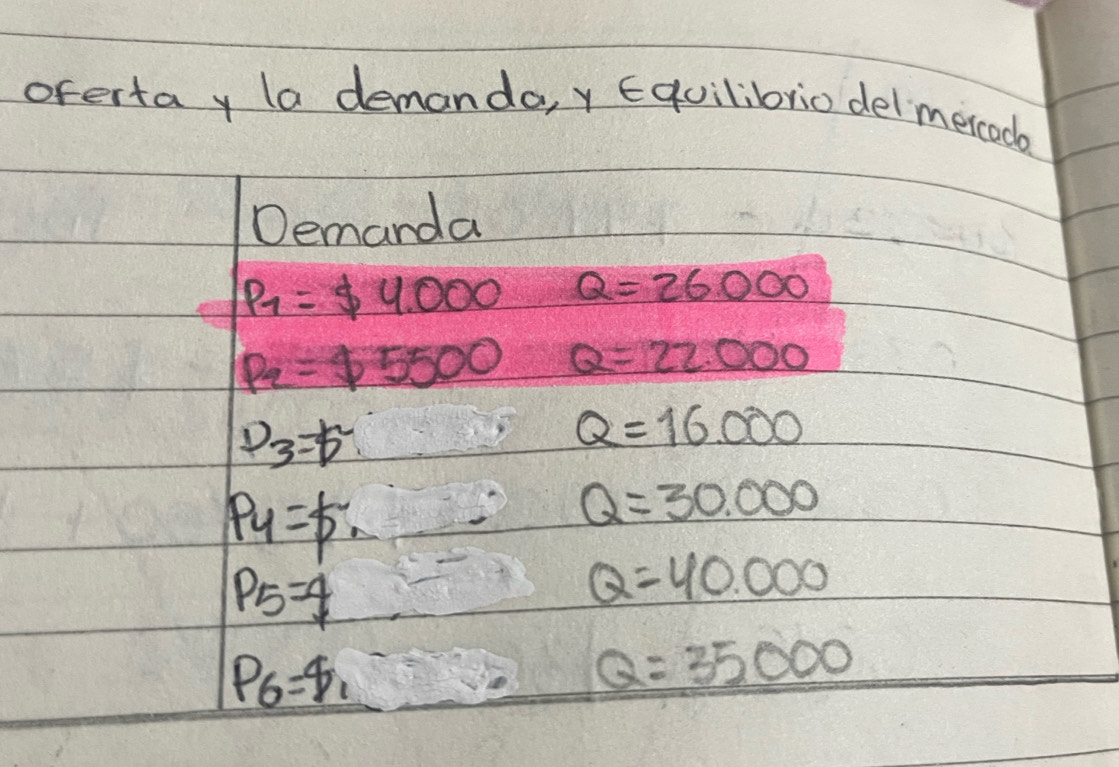 oferta y la demanda, y Equilibrio del mercado
Demanda
P1 = $ 4.000 Q = 26.000
P2 = $ 5500 Q = 22.000
P3 = $ Q = 16.000
P4 = $ Q = 30.000
P5 = $ Q = 40.000
P6 = $ Q = 35000